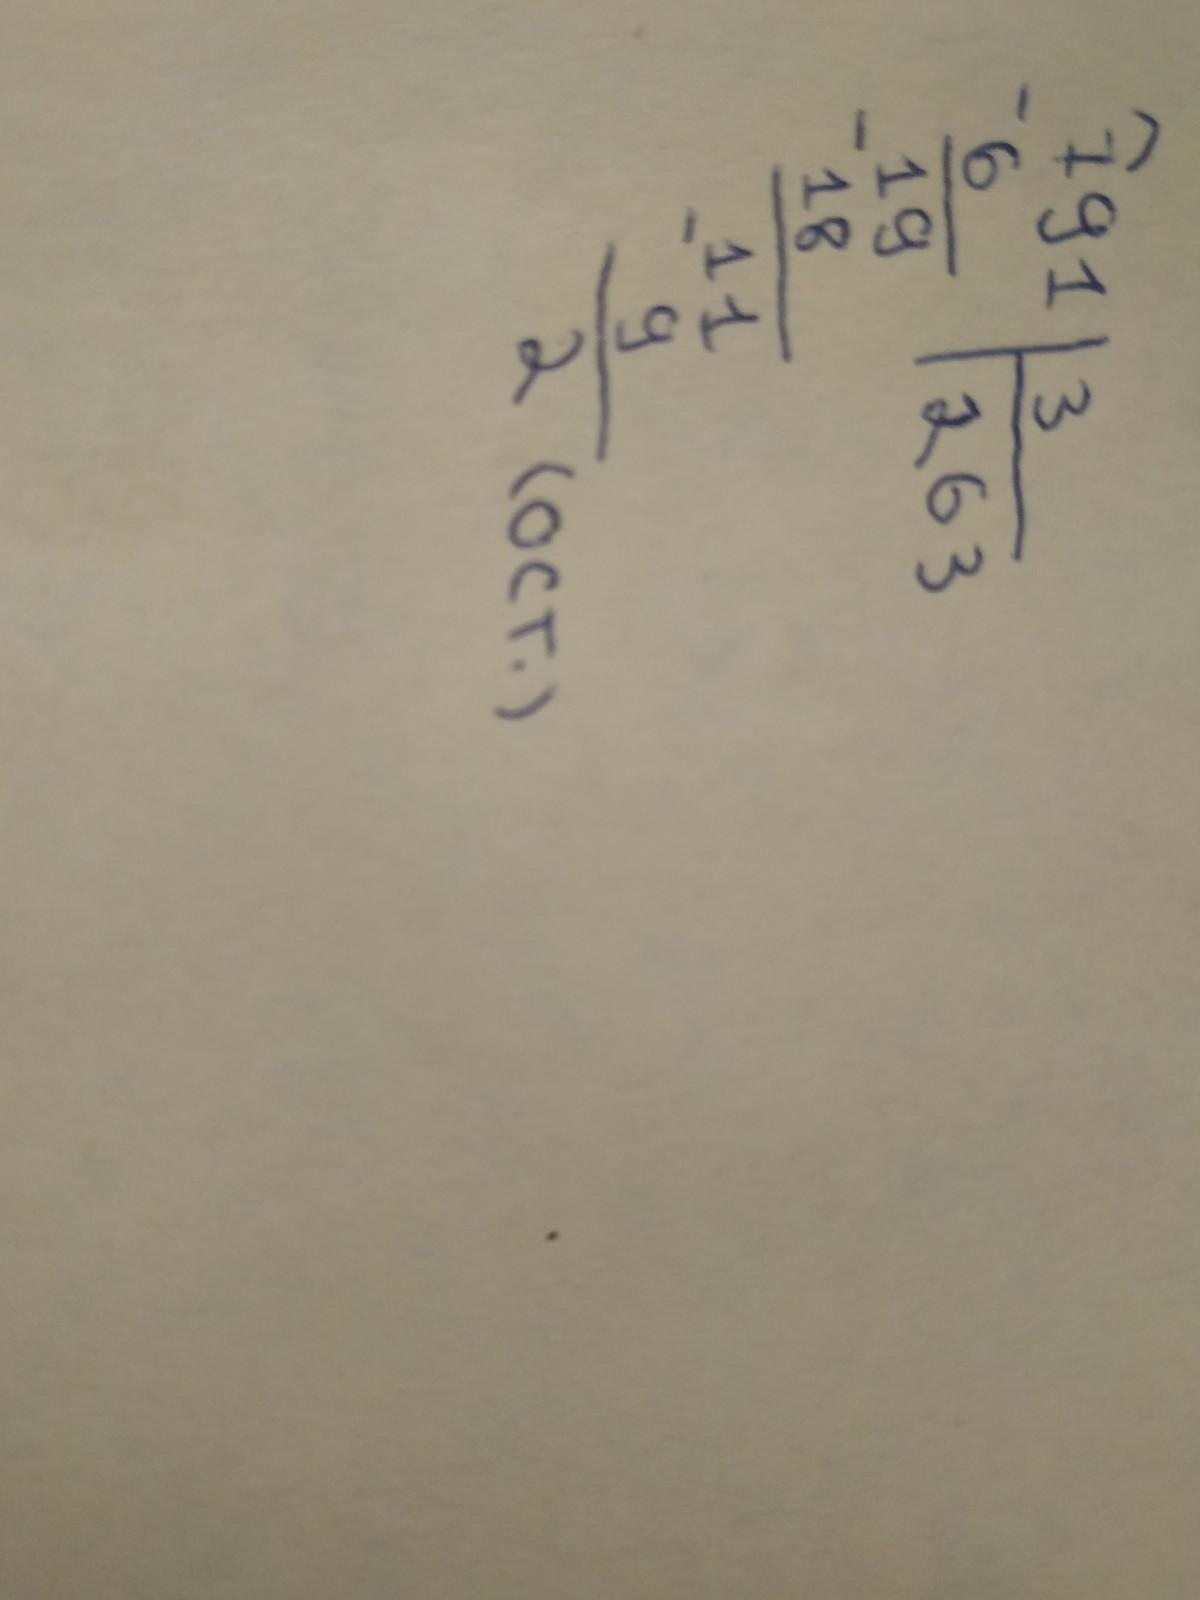 791 | 3
- 6 263
19
- 18
11
- 9
2 (ост.)